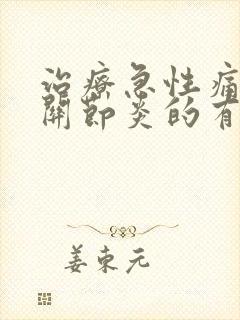 治療急性痛
關節炎的有
姜東元